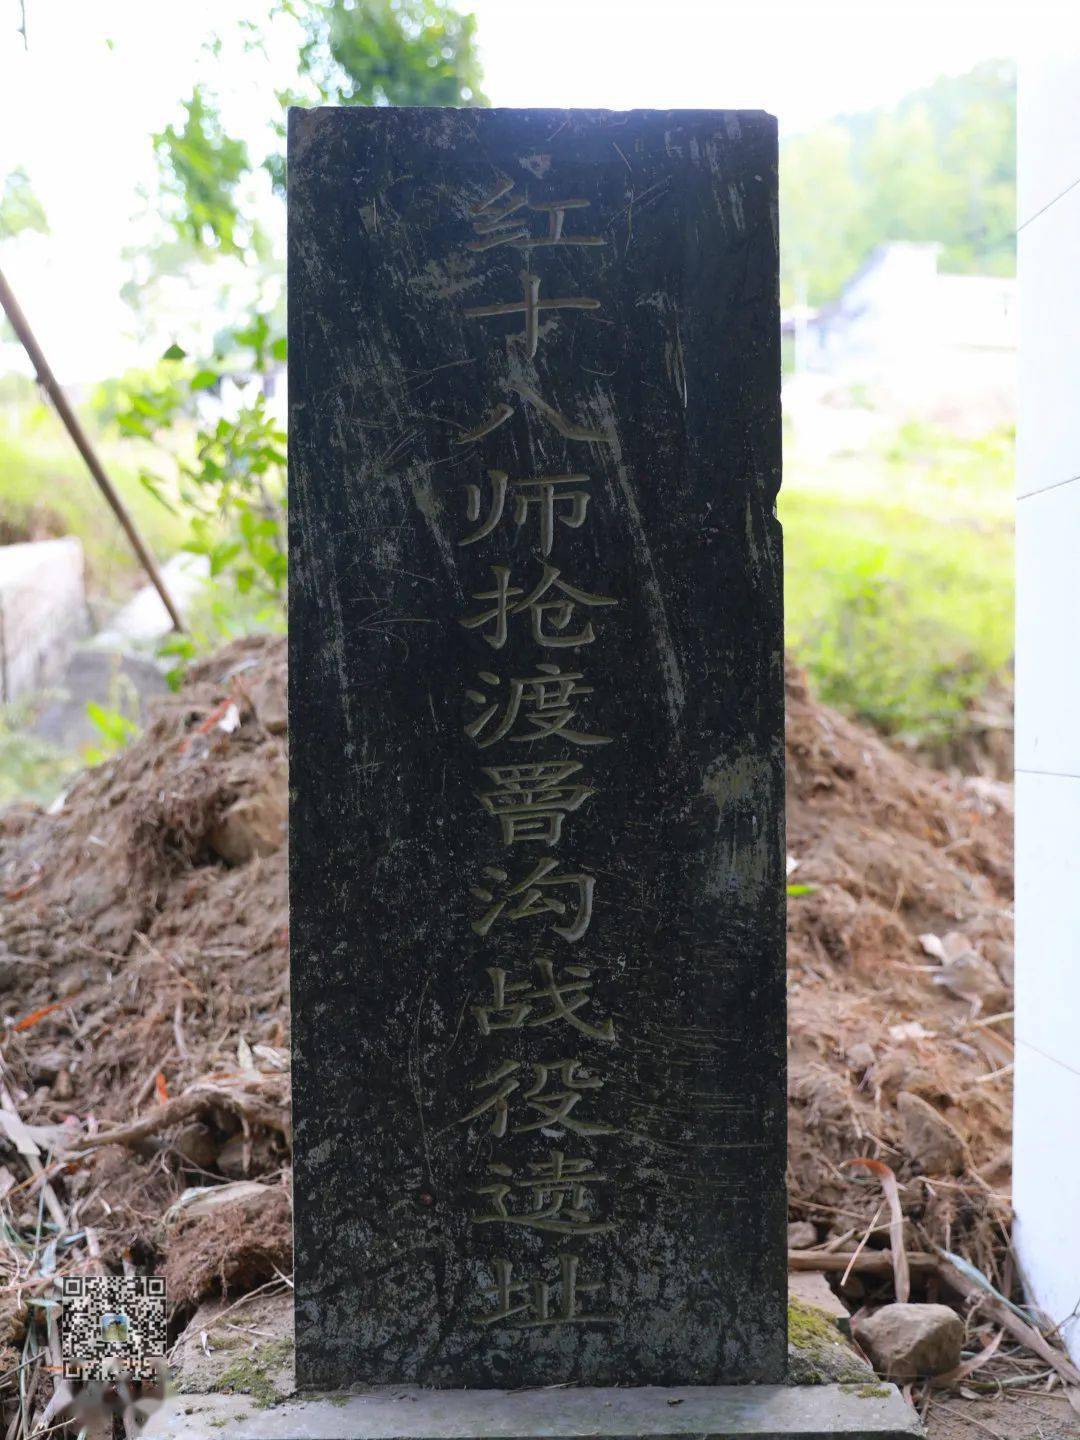 红十八师抢渡罾沟战役遗址